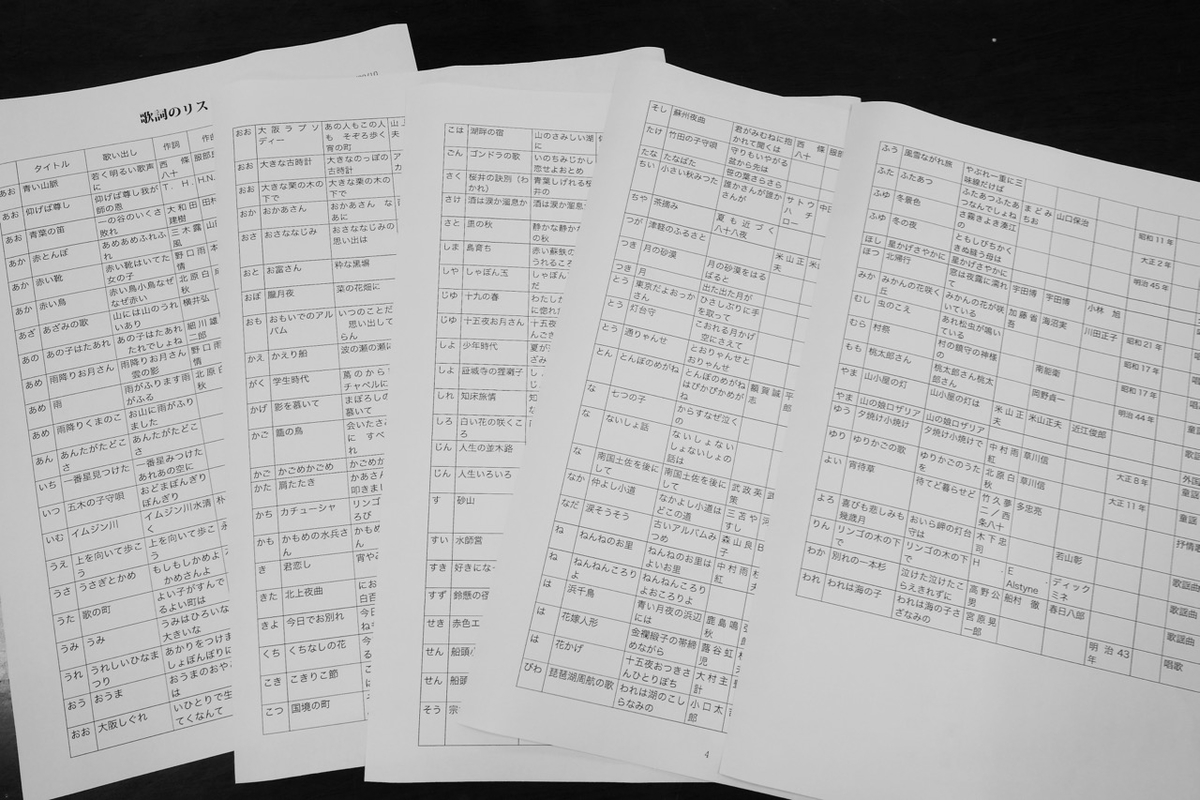 歌詞のリス
タイトル 歌い出し 作詞
あお 青い山脈 若く明るい歌声に 西條八十 服部
あお 仰げば尊し 仰げば尊し我が師の恩 T. H. H.N.
あお 青葉の笛 一の谷のいくさ敗れ 大和田建樹 田村
あか 赤とんぼ あめあめふれふれ 三木露風 山
あか 赤い靴 赤い靴はいてた女の子 野口雨情
あか 赤い鳥 赤い鳥小鳥なぜなぜ赤い 北原白秋
あざ あざみの歌 山には山のうれいあり 横井弘
あの あの子はたあれ あの子はたあれたれでしょね 細川雄二郎
あめ 雨降りお月さん 雨降りお月さん雲の影 野口雨情
あめ 雨 雨がふります雨がふる 北原白秋
あめ 雨降りくまのこ お山に雨がふりました
あん あんたがたどこさ あんたがたどこさ
いち 一番星見つけた 一番星みつけたあれあの空に
いつ 五木の子守唄 おどまぼんぎりぼんぎり
いむ イムジン川 イムジン川水清く 朴
うえ 上を向いて歩こう 上を向いて歩こう 永
うさ うさぎとかめ もしもしかめよかめさんよ
うた 歌の町 よい子がすんでるよい町は
うみ うみ うみはひろいな大きいな
うれ うれしいひなまつり あかりをつけましょぼんぼりに
おう おうま おうまのおや は
おお 大阪しぐれ いひとりで生 てくなんて
おお 大阪ラプソディー あの人もこの人も そぞろ歩く宵の町 山 夫
おお 大きな古時計 大きなのっぽの古時計
おお 大きな栗の木の下で 大きな栗の木の下で
おか おかあさん おかあさん な あに
おさ おさななじみ おさななじみの思い出は
おと お富さん 粋な黒塀
おぼ 朧月夜 菜の花畑に
おも おもいでのアルバム いつのことだ 思い出して らん
かえ かえり船 波の瀬の瀬に
がく 学生時代 蔦のから チャペルに
かげ 影を慕いて まぼろしの 慕いて
かご 籠の鳥 会いたさ に すべ れ
かご かごめかごめ かごめか
かた 肩たたき かあさん 叩きまし
かち カチューシャ リンゴ ろび
かも かもめの水兵さん かもめ
き 君恋し 宵や
きた 北上夜曲 にお 白百
きよ 今日でお別れ 今日 ねも
くち くちなしの花 今
こき こきりこ節
こつ 国境の町
こは 湖畔の宿 山のさみしい湖に
ごん ゴンドラの歌 いのちみじかし恋せよおとめ
さく 桜井の訣別(わかれ) 青葉しげれる桜井の
さけ 酒は涙か溜息か 酒は涙か溜息か
さと 里の秋 静かな静かな の秋
しま 島育ち 赤い蘇鉄の うれるこ
しや しゃぼん玉 しゃぼん だ
じゆ 十九の春 わたし に惚れ
じゆ 十五夜お月さん 十五夜 んごき
しよ 少年時代 夏が ざみ
しよ 証城寺の狸囃子
しれ 知床旅情 知
しろ 白い花の咲くころ
じん 人生の並木路
じん 人生いろいろ
す 砂山
すい 水師営
すき 好きにな
すず 鈴懸の
せき 赤色エ
せん 船頭
せん 船頭
そう 宗
そし 蘇州夜曲 君がみむねに抱かれて聞くは 西條八十 服部
たけ 竹田の子守唄 守りもいやがる盆から先は
たな たなばた 笹の葉さらさら
ちい 小さい秋みつけた 誰かさんが誰かさんが サトウハチロー 中田
ちや 茶摘み 夏も近づく八十八夜
つが 津軽のふるさと 米山正夫 米山
つき 月の砂漠 月の砂漠をはるばると
つき 月 出た出た月が
とう 東京だよおっかさん ひさしぶりに手を取って
とう 灯台守 こおれる月かげ空にさえて
とう 通りゃんせ とおりゃんせとおりゃんせ
とん とんぼのめがね とんぼのめがねはぴかぴかめがね 額賀誠志 平 郎
な 七つの子 からすなぜ泣く
な ないしょ話 ないしょないしょないしょの話は
な 南国土佐を後にして 南国土佐を後にして 武政英策 武
なか 仲よし小道 なかよし小道はどこの道 三苫やすし 河
なだ 涙そうそう 古いアルバムみつめ 森山良子 B
ね ねんねのお里 ねんねのお里はよいお里 中村雨紅 杉
ね ねんねんころりよ ねんねんころりよおころりよ
は 浜千鳥 青い月夜の浜辺には 鹿島鳴秋 弘
は 花嫁人形 金襴緞子の帯締めながら 蕗谷虹児 杉
は 花かげ 十五夜おつきさんひとりぼち 大村主計
びわ 琵琶湖周航の歌 われは湖のこしらなみの 小口太郎
4
ふう 風雪ながれ旅 やぶれ一重に三味線だけば
ふた ふたあつ ふたあつふたあつなんでしょね まどみちお 山口保治 昭和11年
ふゆ 冬景色 さ霧きよき湊江の 大正2年
ふゆ 冬の夜 ともしびちかくきぬ縫う母は 明治45年
ほし 星かげさやかに 星かげさやかに
ほつ 北帰行 窓は夜露に濡れて 宇田博 宇田博 小林 旭
みか みかんの花咲く丘 みかんの花が咲いている 加藤省吾 海沼実 川田正子 昭和21年
むし 虫のこえ あれ松虫が鳴いている
むら 村祭 村の鎮守の神様の 南能衛 昭和17年
もも 桃太郎さん 桃太郎さん桃太郎さん 岡野貞一 明治44年
やま 山小屋の灯 山小屋の灯は 米山正夫 米山正夫 近江俊郎
やま 山の娘ロザリア 山の娘ロザリア
ゆう 夕焼け小焼け 夕焼け小焼けで 中村雨紅 草川信
ゆり ゆりかごの歌 ゆりかごのうたを 北原白秋 草川信 大正8年
よい 宵待草 待てど暮らせど 竹久夢二/西条八十 多忠亮 大正11年
よろ 喜びも悲しみも幾歳月 おいら岬の灯台守は 木下忠司 若山彰
りん リンゴの木の下で リンゴの木の下で H. E. Alstyne ディックミネ 歌謡曲
わか 別れの一本杉 泣けた泣けたこらえきれずに 高野公男 船村 徹 春日八郎 歌謡曲
われ われは海の子 われは海の子さざなみの 宮原晃一郎 明治43年 唱歌